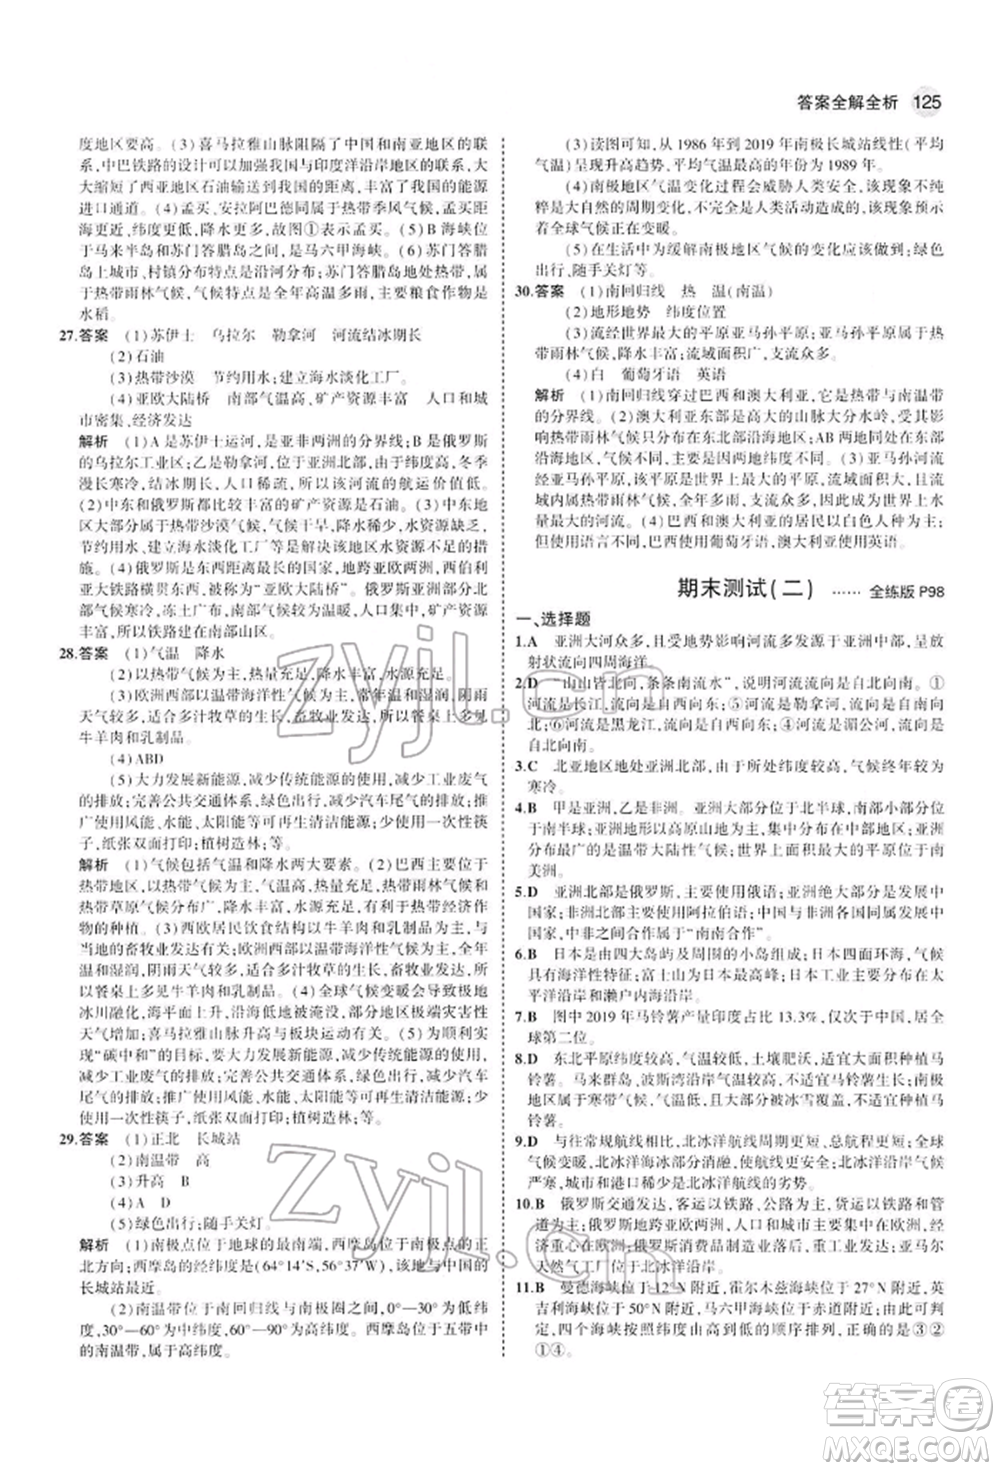 答案全解全析 125
度地区要高。(3)喜马拉雅山脉阻隔了中国和南亚的联
系,中巴铁路的设计可以加强我国与印度洋沿岸的联系,大
大缩短了西亚地区石油输送到我国的距离,丰富了我国的能源
进口通道。(4)孟买、安拉阿巴德同属于热带季风气候,孟买距
海更近,纬度更低,降水更多,故图①表示孟买。(5)B海峡位于
马来半岛和苏门答腊岛之间,是马六甲海峡。(6)苏门答腊
岛上城市、村镇分布特点是沿河分布;苏门答腊岛地处热带,属
于热带雨林气候,气候特点是全年高温多雨;主要粮食作物是
水稻。
27.答案 (1)苏伊士 乌拉尔 勒拿河 河流结冰期长
(2)石油
(3)热带沙漠 节约用水;建立海水淡化工厂。
(4)亚欧大陆桥 南部气温高,矿产资源丰富 人口和城
市密集,经济发达
解析 (1)A是苏伊士运河,是亚非两洲的分界线;B是俄罗斯
的乌拉尔工业区;乙是勒拿河,流经亚洲北部,纬度较高,冬季
漫长寒冷,人口稀疏,所以该河流结冰期较长,航运价值低。
(2)中东和俄罗斯都比较丰富的矿产资源是石油。(3)中东地
区大部分属于热带沙漠气候,气候干旱,降水稀少,水资源缺乏,
节约用水、建立海水淡化工厂等可以解决该地水资源缺乏问题。
(4)中东大部分地处亚欧大陆西部,
亚大铁路横贯东西,被称为“亚欧大陆桥”。俄罗斯北部地区气
候寒冷,冻土广布;南部纬度较低,较温暖,人口、城市分布密
集,所以铁路建在南部山区。
28.答案 (1)气温 降水
(2)以热带气候为主,热量充足,降水充足。
(3)欧洲西部的温带海洋性气候,全年温和湿润,阴雨
天气较多,适合多汁牧草的生长,畜牧业发达,所以餐桌上多见
牛羊肉和乳制品。
(4)ABD
(5)大力发展新能源,减少传统能源的使用,减少工业废气
的排放;完善公共交通体系,绿色出行,减少汽车尾气的排放;推
广使用风能、水能、太阳能等可再生清洁能源;少用一次性筷
子,纸张双面打印;植树造林;等。
解析 (1)气候包括气温和降水两大要素。(2)巴西主要位于
热带地区,以热带雨林气候和热带草原气候为主,热量充足,
水源充足,地形以平原和高原为主,适合热带经济作物
的种植。(3)西欧居民饮食结构以牛羊肉和乳制品为主,与
当地的畜牧业发达有关;欧洲西部以温带海洋性气候为主,全年
温和湿润,阴雨天气较多,适合多汁牧草的生长,畜牧业发达,所
以餐桌上多见牛羊肉和乳制品。(4)全球气候变暖会导致两极
冰川融化,海平面上升,淹没沿海低地;还会使部分地区极端灾害性
天气增加;喜马拉雅山脉升高与板块运动有关。(5)为了实现
“碳中和”的目标,要大力发展新能源,减少传统能源的使用,
减少工业废气的排放;完善公共交通体系,绿色出行,减少汽车
尾气的排放;推广使用风能、水能、太阳能等可再生清洁能源;
少用一次性筷子,纸张双面打印;植树造林;等。
29.答案 (1)正北 长城站
(2)南温带 高
(3)升高 B
(4)A D
(5)绿色出行;随手关灯。
解析 (1)南极点位于地球的最南端,西摩岛在南极点的正
北方向;西摩岛的经纬度是(64°14′S,56°37′W),因此离我国的
长城站最近。
(2)南温带位于南回归线与南极圈之间;0°—30°为低纬度,
30°—60°为中纬度,60°—90°为高纬度。西摩岛位于66.5°S以北
的南温带,属于高纬度。
(3)读图可知,从1986年到2019年南极长城站线性(平均
气温)呈现升高趋势,平均气温最高的年份为1989年。
(4)南极地区气温变化过程会威胁人类安全,该现象不纯
粹是大自然的周期变化,人类活动造成的影响更大,该现象预示
着全球气候正在变暖。
(5)在生活中为缓解南极地区气候的变化应该做到:绿色
出行、随手关灯等。
30.答案 (1)南回归线 热 温(南温)
(2)地形地势 纬度位置
(3)流经世界最大的平原亚马孙平原;亚马孙平原属于热
带雨林气候,降水丰富;流域面积广,支流众多。
(4)白 葡萄牙语 英语
解析 (1)南回归线穿过巴西和澳大利亚,它是热带与南温带
的分界线。(2)澳大利亚东部是高大的山脉大分水岭,所以热
带雨林气候只分布在东部沿海地区;AB两地位于北部沿海地区,
纬度较低,气温较高,故人口稀少。(3)亚马孙河流经亚
马孙平原,该平原是世界上最大的平原,面积广大,且该流
域内属于热带雨林气候,降水丰富,支流众多,因此成为世界上水
量最大的河流。(4)巴西和澳大利亚的居民以白种人为主,
但使用语言不同,巴西使用葡萄牙语,澳大利亚使用英语。
期末测试(二) …… 全练版P98
一、选择题
1.A 亚洲大河众多,且受地势影响河流多发源于亚洲中部,呈放
射状流向四周海洋。
2.D “山山皆北向,条条南流水”,说明河流流向是自北向南。①
河流是长江,流向是自西向东;②河流是恒河,流向是自西北向东
北;⑥河流是黑龙江,流向是自西向东;④河流是湄公河,流向是自
北向南。
3.C 北亚地区地处亚洲北部,所处纬度较高,气候终年较为
寒冷。
4.B 甲是亚洲,乙是非洲。亚洲大部分位于北半球,少部分位于
南半球;亚洲地形以高原山地为主,集中分布在中部;亚洲分
布最广的是温带大陆性气候;亚洲东北与北美洲相邻,而不是南
美洲。
5.D 亚洲北部是俄罗斯,主要使用俄语;亚洲绝大部分是发展中
国家;非洲北部主要使用阿拉伯语;中国与非洲各国同属发展中
国家,中非之间合作属于“南南合作”。
6.B 日本是由四大岛屿及周围的小岛组成;日本四面环海,具
有海洋性特征;富士山是日本最高峰;日本工业主要分布在太
平洋沿岸和濑户内海沿岸。
7.B 图中2019年马铃薯产量印度占比13.3%,仅次于中国,居全
球第二位。
8.D 东北平原纬度较高,气温较低,土壤肥沃,适宜大面积种植马
铃薯。马来群岛、波斯湾沿岸气温较高,不适宜种植马铃薯;南极
地区属于寒带气候,大部分地区终年被冰雪覆盖,不适合种植马
铃薯。
9.D 与苏伊士等常规航线相比,北冰洋航线距离更短;全球
气候变暖,北冰洋海冰消融,航行条件变好;北冰洋沿岸气候
严寒,城市和港口稀少是北冰洋航线的劣势。
10.B 俄罗斯交通发达,客运以铁路、公路为主,货运以铁路和管
道为主;俄罗斯地跨亚欧两洲,重工业发达,轻工业落后,亚马尔
天然气工厂位于北冰洋沿岸。
11.B 曼德海峡位于12°N附近,霍尔木兹海峡位于27°N附近,英
吉利海峡位于50°N附近,马六甲海峡位于赤道附近,由此可判
定,四个海峡按照纬度由高到低的顺序排列,正确的是③②
①④。
zyjl.cn
zyjl.cn
答案圈
MXQE.COM